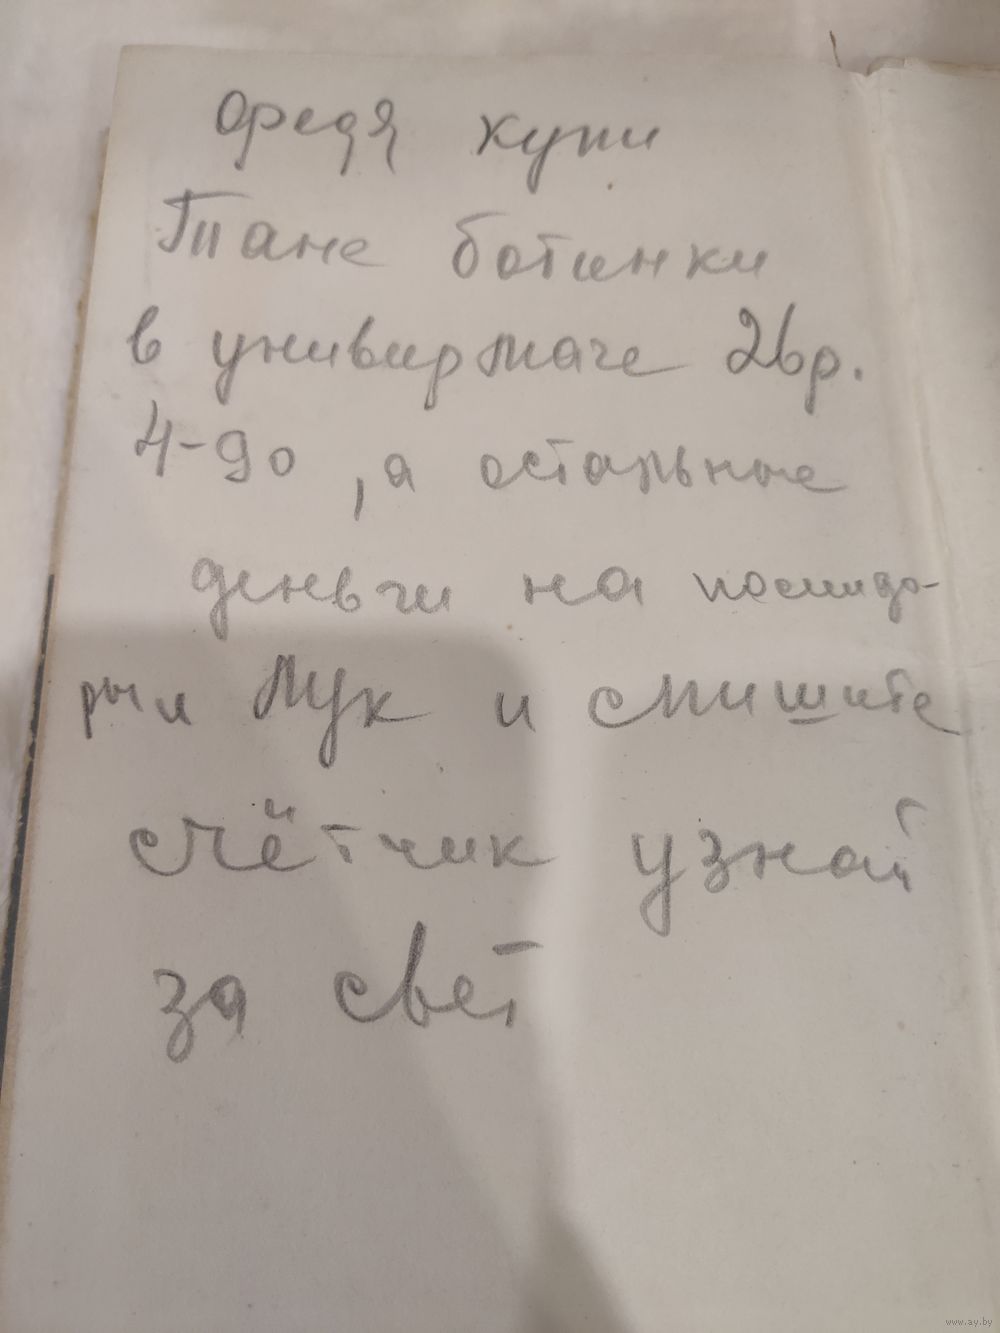 Федя купи
Тане ботинки
в унивирмаге 26р.
4-90, а остальные
деньги на помидо-
ры и лук и спишите
счётчик узнай
за свет
www.ay.by